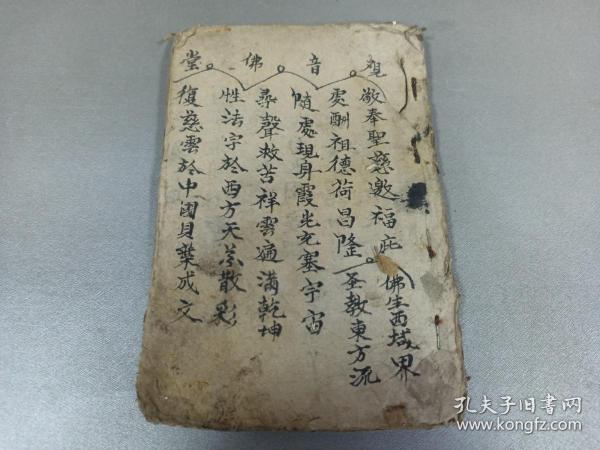 觀音佛堂
敬奉聖慈邀福庇 佛生西域界
處酬祖德荷昌隆 圣教東方流
隨處現身霞光充塞宇宙
尋聲救苦祥雲遍滿乾坤
性法宇於西方天花散彩
復慈雲於中國貝葉成文
孔夫子旧书网
www.kongfz.com